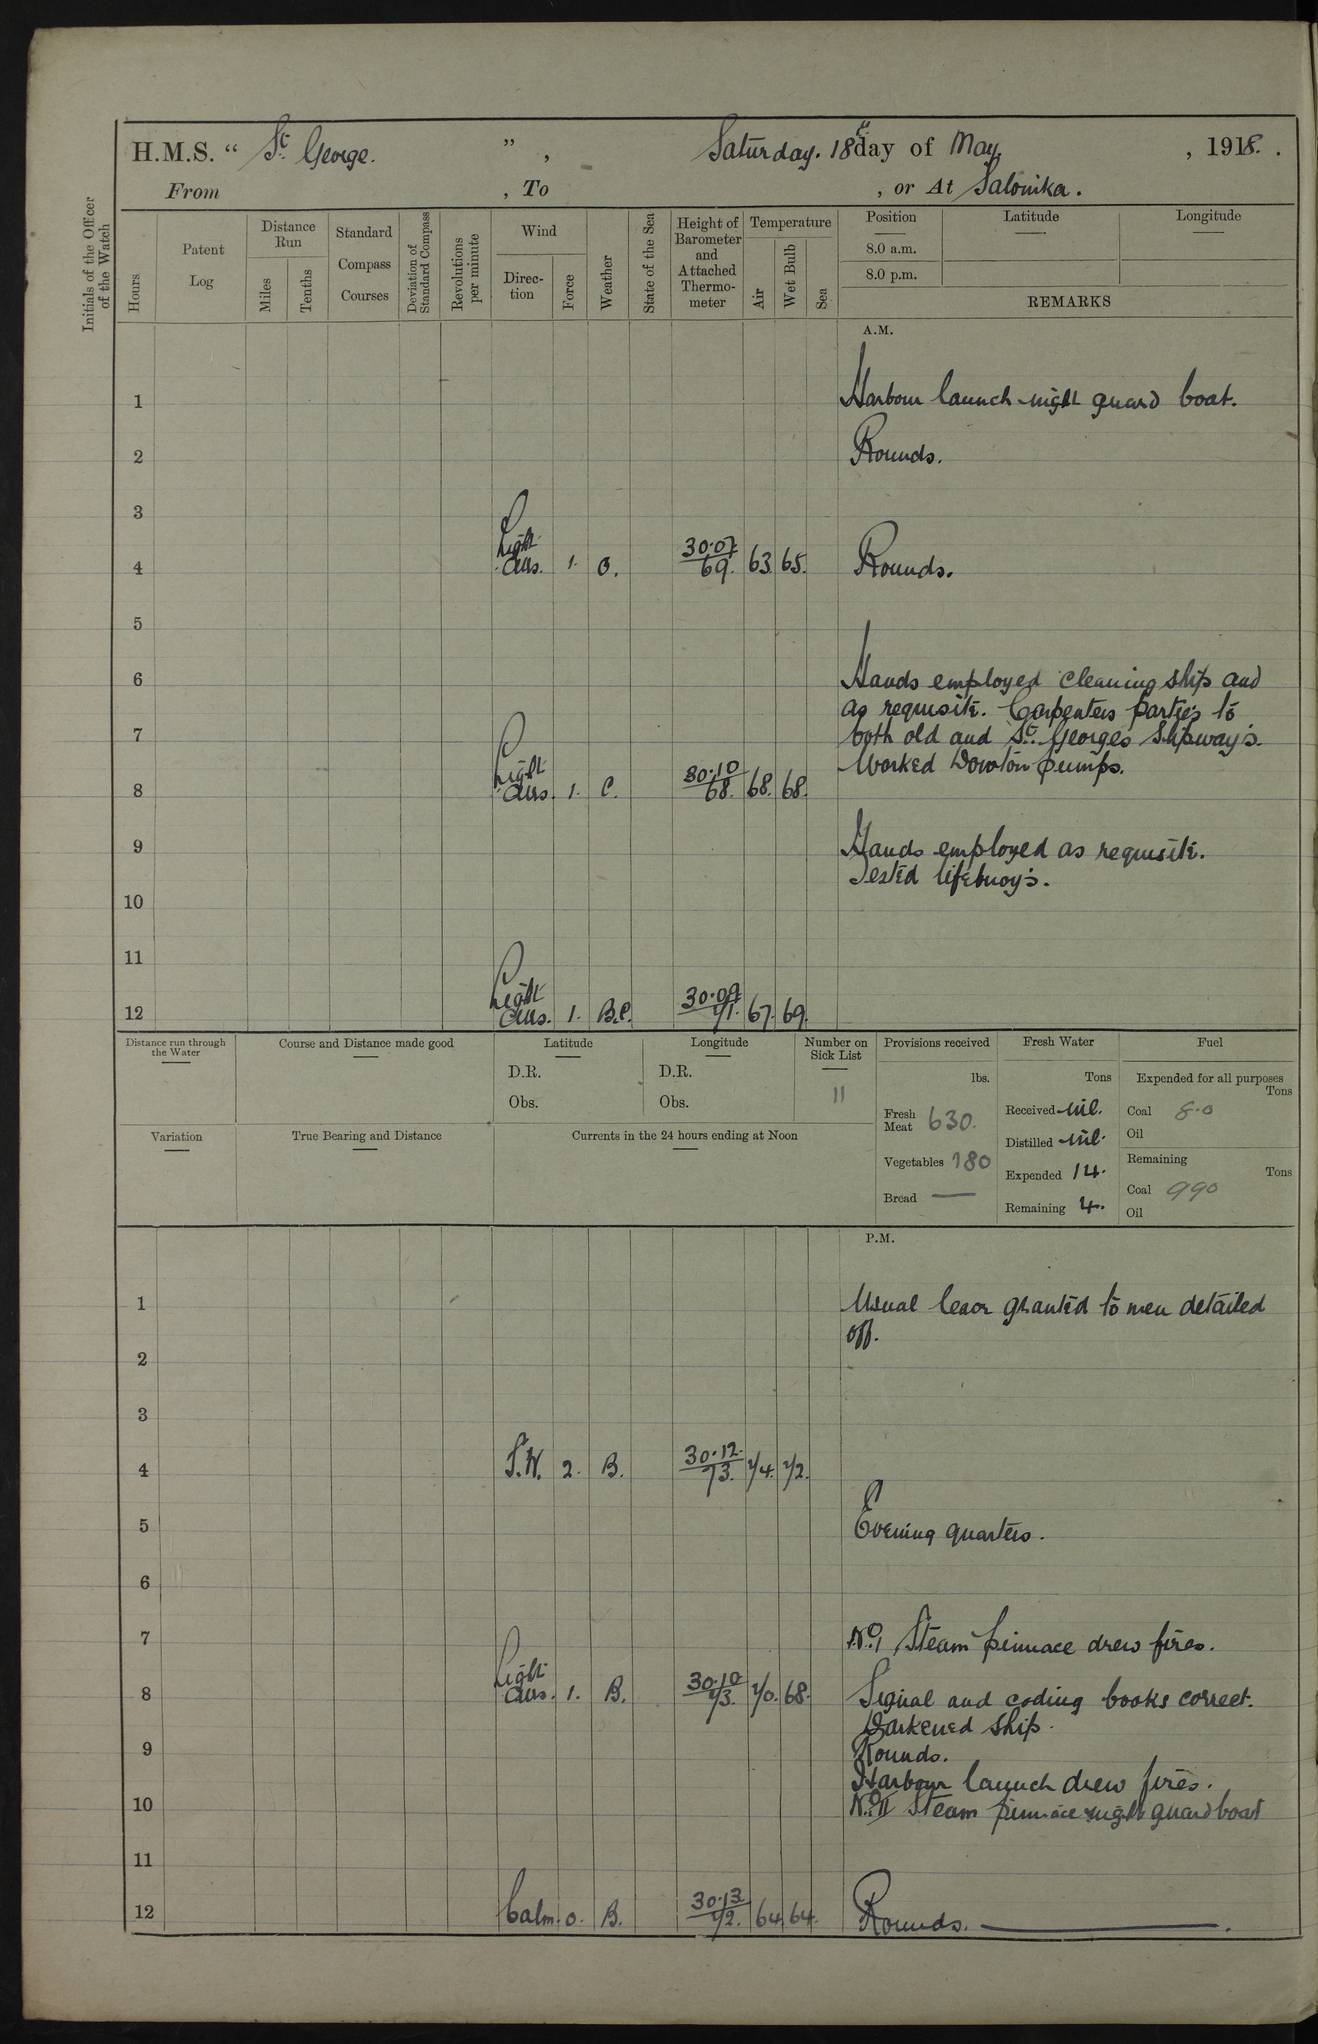 H.M.S. “ St. George. ” , Saturday. 18th day of May , 1918. .
From , To , or At Salonika.
Initials of the Officer of the Watch
Hours
Patent Log
Distance Run
Miles
Tenths
Standard Compass Courses
Deviation of Standard Compass
Revolutions per minute
Wind
Direc-tion
Force
Weather
State of the Sea
Height of Barometer and Attached Thermo-meter
Temperature
Air
Wet Bulb
Sea
Position Latitude Longitude
8.0 a.m.
8.0 p.m.
REMARKS
A.M.
1 Harbour launch night guard boat.
2 Rounds.
3
4 Light airs. 1. O. 30.07 69. 63. 65. Rounds.
5
6 Hands employed cleaning ship and
as requisite. Carpenters parties to
7 both old and St. Georges slipway's.
Worked Downton pumps.
8 Light airs. 1. C. 30.10 68. 68. 68.
9 Hands employed as requisite.
Tested lifebuoy's.
10
11
12 Light airs. 1. B.C. 30.09 71. 67. 69.
Distance run through the Water
Course and Distance made good
Latitude
D.R.
Obs.
Longitude
D.R.
Obs.
Number on Sick List
11
Provisions received
lbs.
Fresh Meat 630.
Vegetables 180
Bread —
Fresh Water
Tons
Received nil.
Distilled nil.
Expended 14.
Remaining 4.
Fuel
Expended for all purposes
Tons
Coal 8.0
Oil
Remaining
Tons
Coal 990
Oil
Variation
True Bearing and Distance
Currents in the 24 hours ending at Noon
P.M.
1 Usual leave granted to men detailed
off.
2
3
4 S.W. 2. B. 30.12. 73. 74. 72.
5 Evening quarters.
6
7 No. 1 Steam pinnace drew fires.
8 Light airs. 1. B. 30.10 73. 70. 68. Signal and coding books correct.
Darkened ship.
9 Rounds.
Harbour launch drew fires.
10 No. II Steam pinnace night guard boat
11
12 Calm. 0. B. 30.13 72. 64. 64. Rounds.